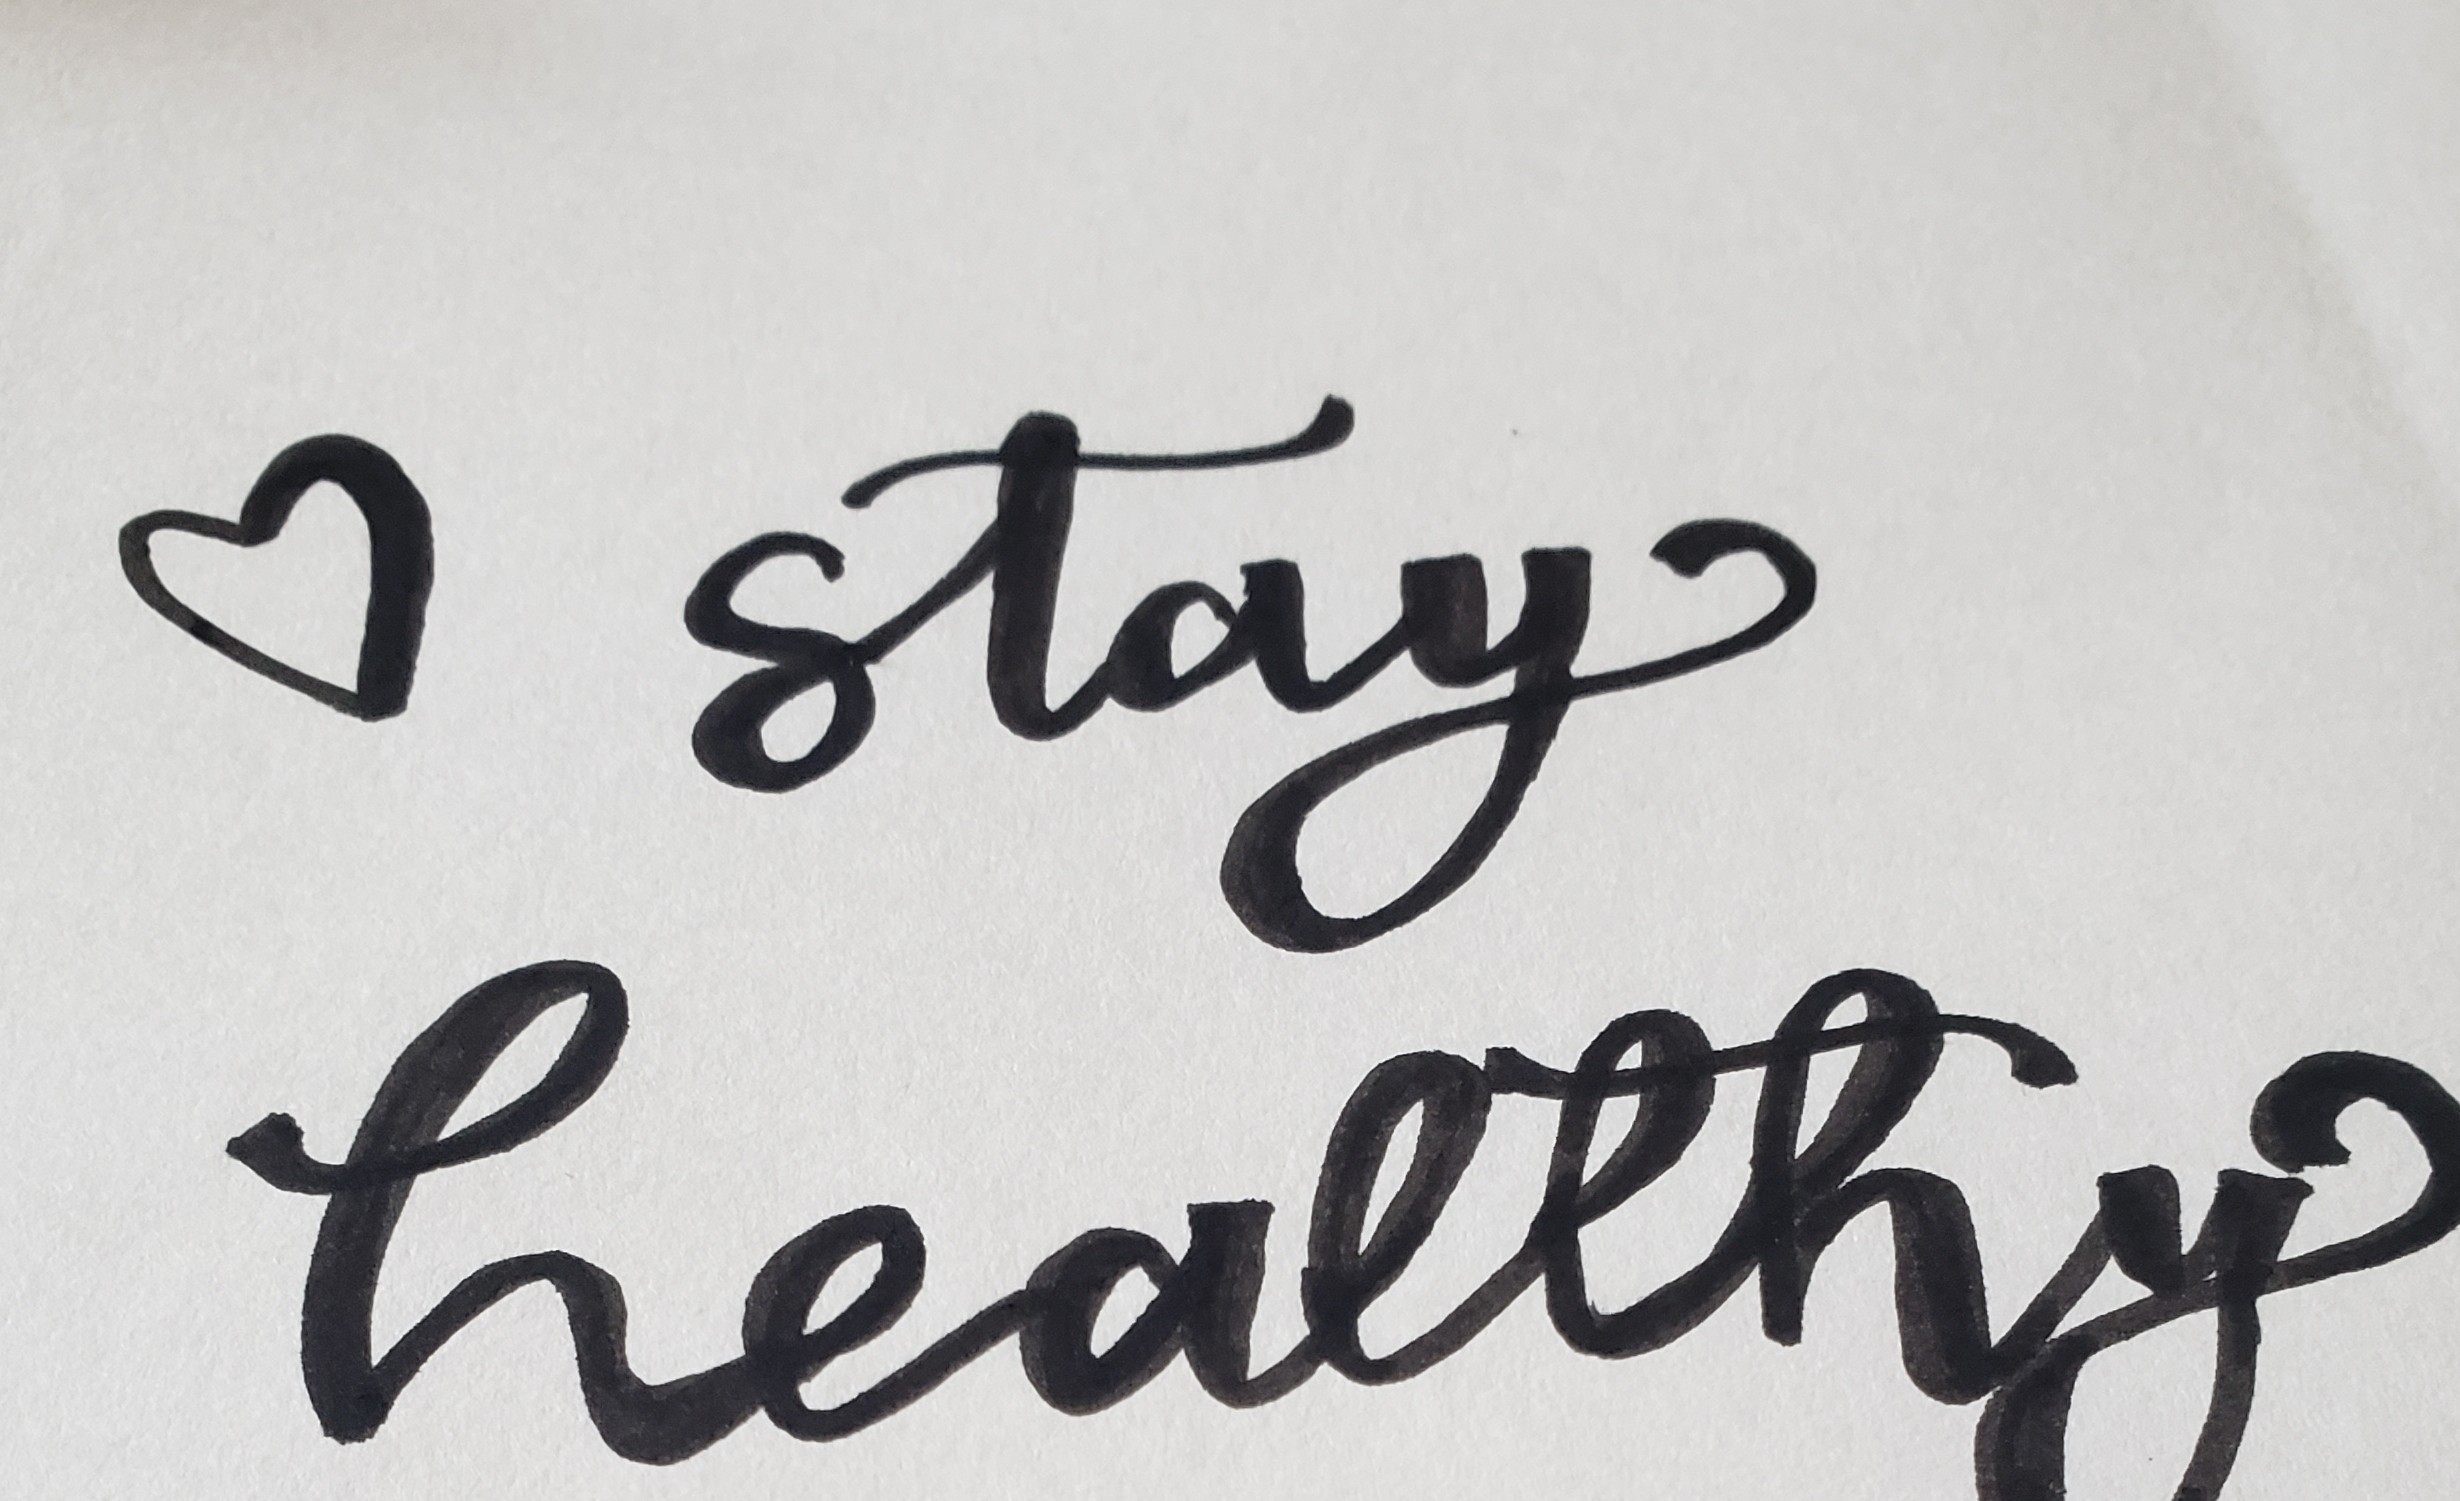 stay
healthy